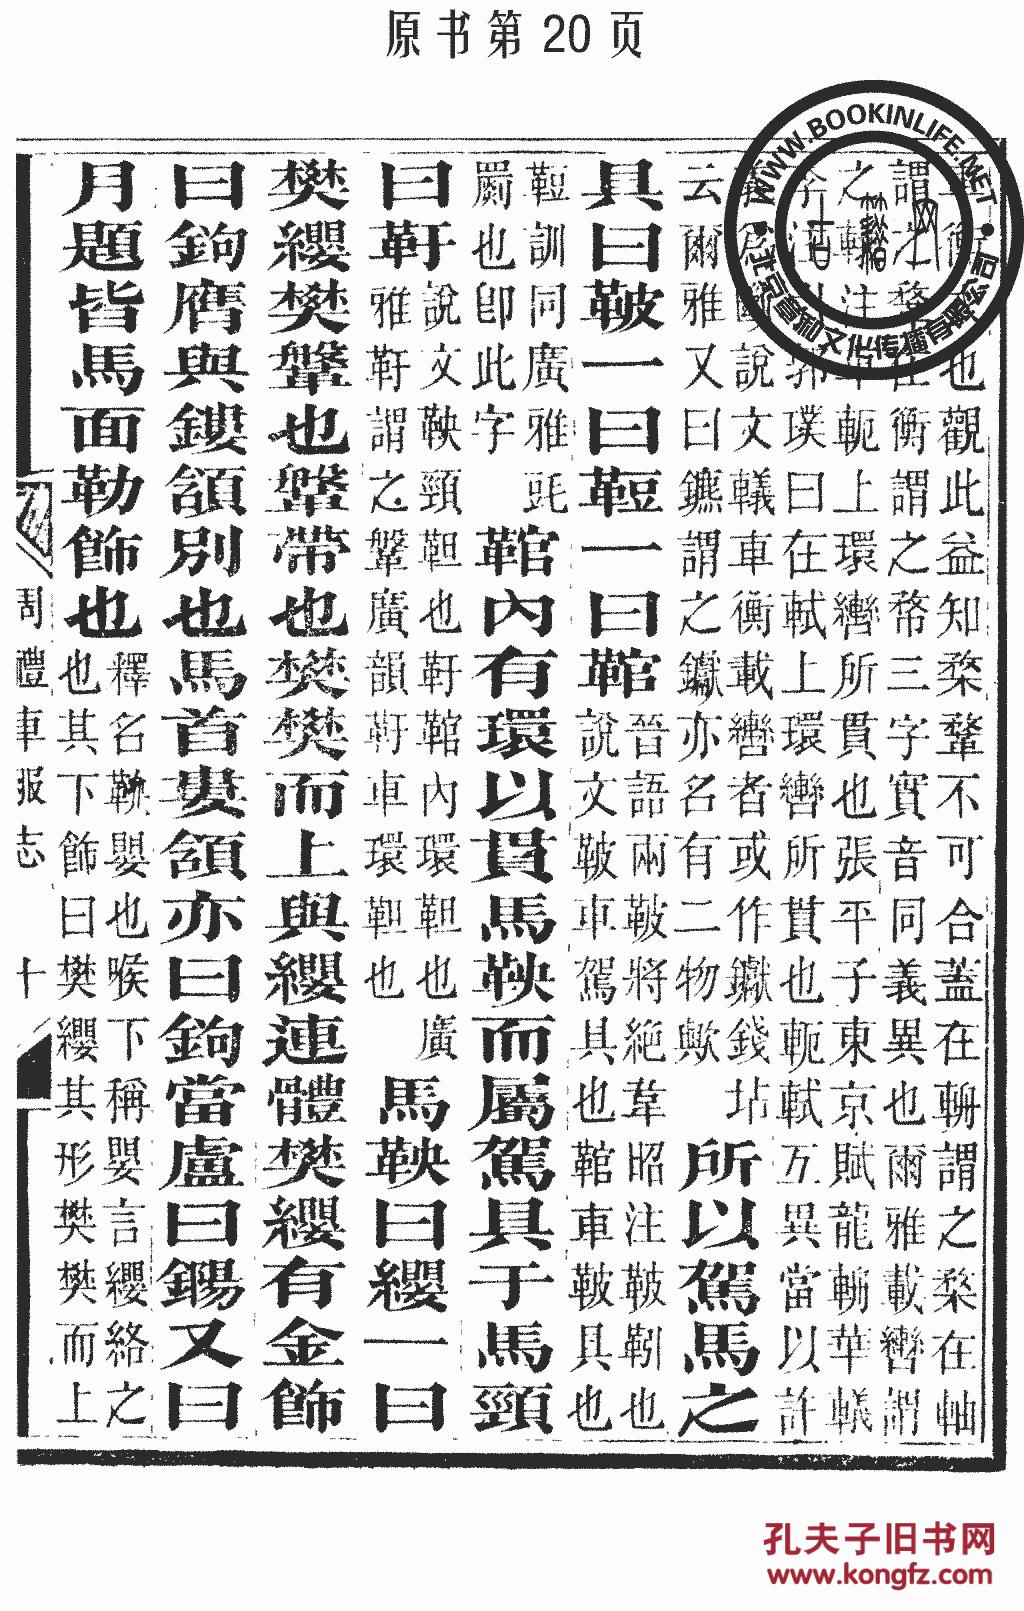 原书第20页
衡也觀此益知楘鞪不可合蓋在輈謂之楘在軸
謂之鞪在衡謂之帑三字實音同義異也爾雅載轡謂
之轙注車軛上環轡所貫也張平子東京賦龍輈華轙
郭璞曰在軾上環轡所貫也軛軾互異當以許
說文轙車衡載轡者或作钀錢坫
云爾雅又曰鑣謂之钀亦名有二物歟
所以駕馬之
具曰鞁一曰䩞一曰䩪
晉語兩鞁將絕韋昭注鞁靷也
說文鞁車駕具也䩪車鞁具也
䩞訓同廣雅
罽也卽此字
䩪內有環以貫馬鞅而屬駕具于馬頸
曰靬
說文鞅頸靼也靬䩪內環靼也廣
雅靬謂之鞶廣韻靬車環靼也
馬鞅曰纓一曰
樊纓樊鞶也鞶帶也樊樊而上與纓連體樊纓有金飾
曰鉤膺與鏤頷別也馬首婁頷亦曰鉤當盧曰鍚又曰
月題皆馬面勒飾也
釋名鞅嬰也喉下稱嬰言纓絡之
也其下飾曰樊纓其形樊樊而上
周禮車服志
十
WWW.BOOKINLIFE.NET
孔夫子旧书网
www.kongfz.com